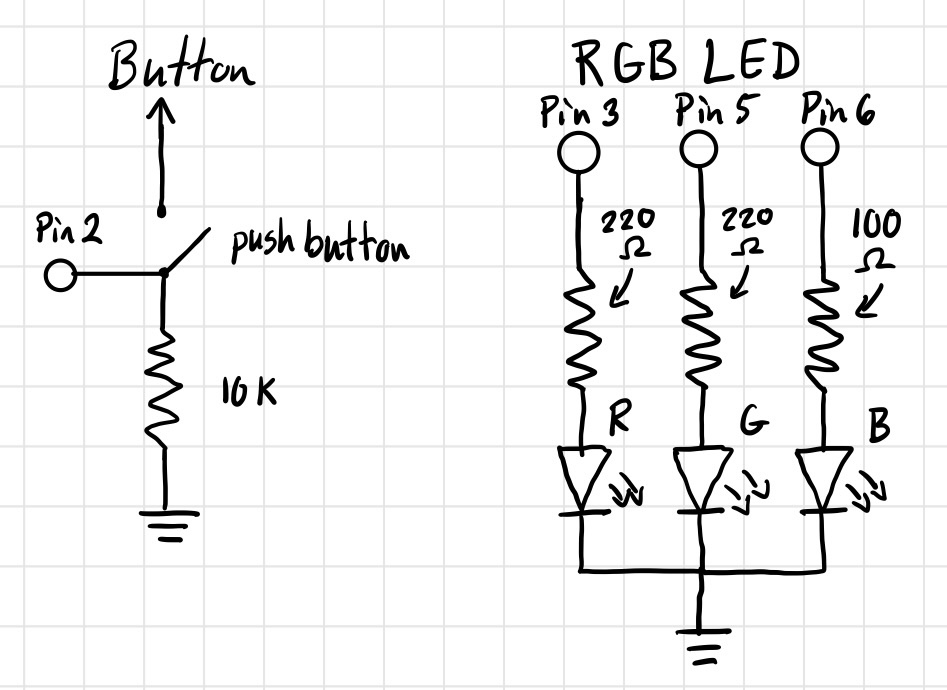 Button
Pin 2
push button
10 K
RGB LED
Pin 3
Pin 5
Pin 6
220
Ω
220
Ω
100
Ω
R
G
B